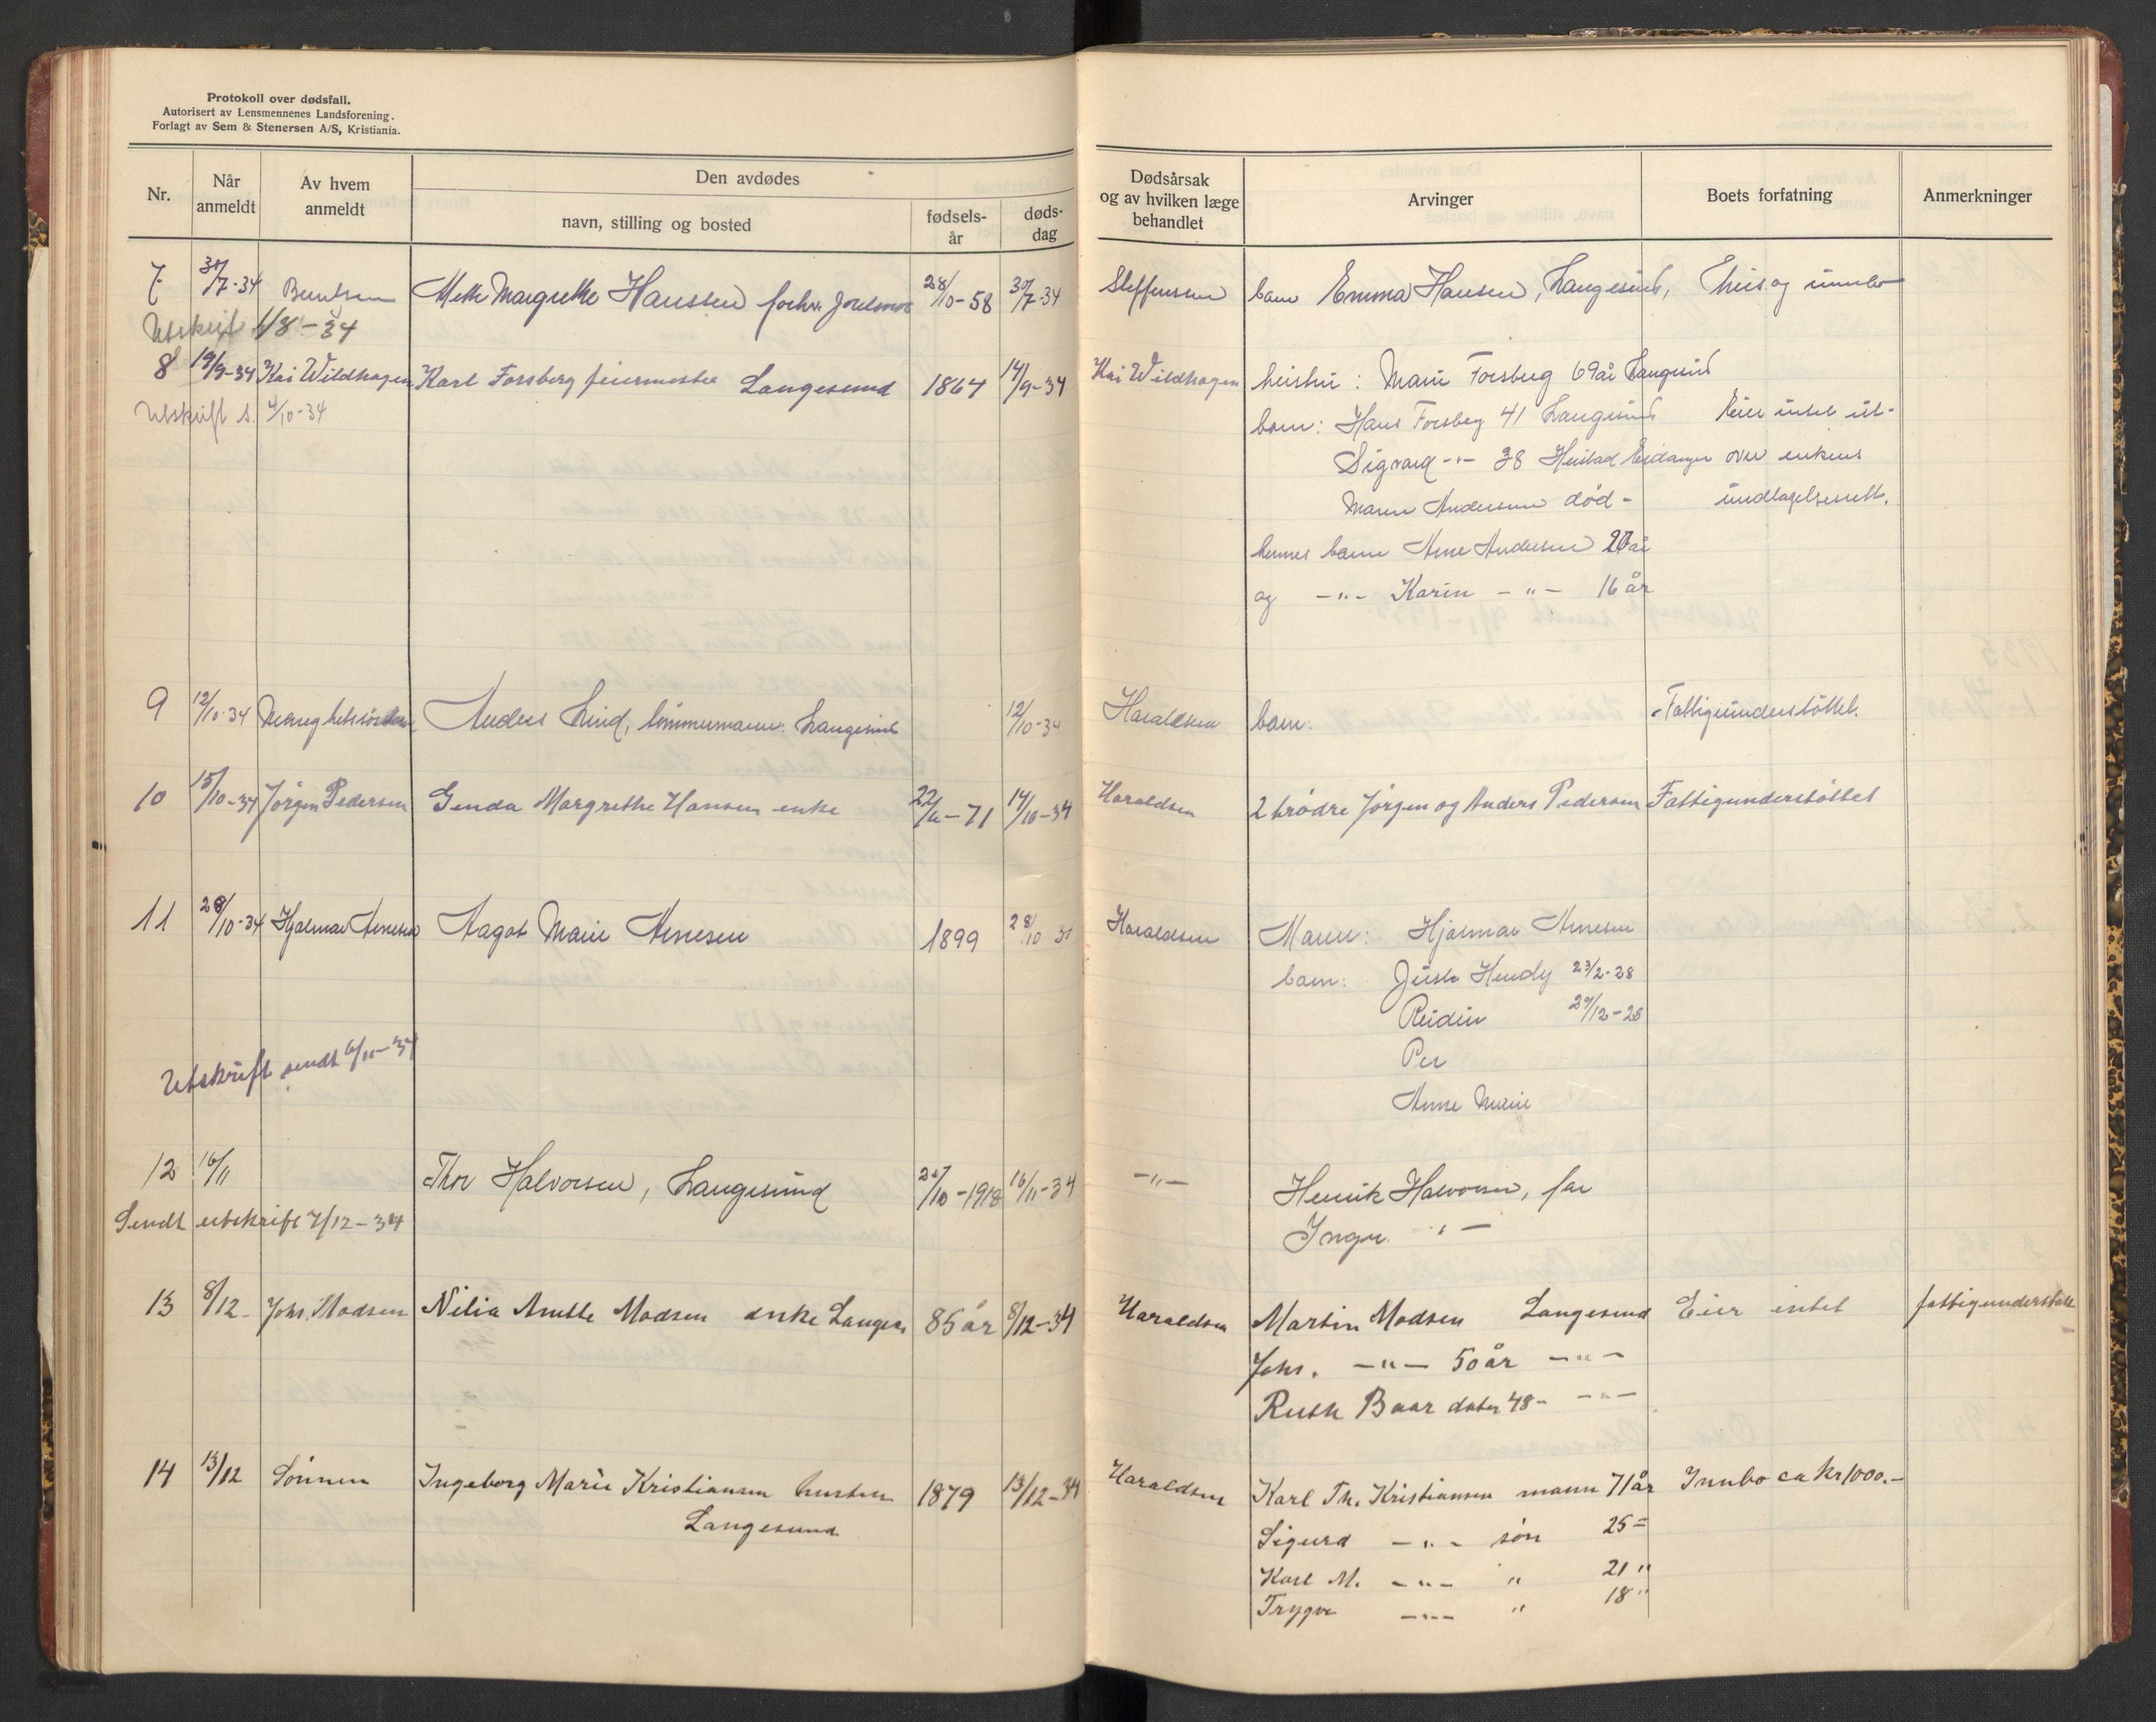 Protokoll over dødsfall.
Autorisert av Lensmennenes Landsforening.
Forlagt av Sem & Stenersen A/S, Kristiania.
Nr.
Når anmeldt
Av hvem anmeldt
Den avdødes
navn, stilling og bosted
fødsels-år
døds-dag
Dødsårsak og av hvilken læge behandlet
Arvinger
Boets forfatning
Anmerkninger
7 30/7-34 Berntsen Mette Margrethe Hanssen forhv. Jordmor 28/10-58 30/7-34 Steffensen barn Emma Hansen, Langesund, Hus og innbo
Utskrift 1/8-34
8 19/9-34 Kai Wildhagen Karl Forsberg feiermester Langesund 1864 14/9-34 Kai Wildhagen hustru: Marie Forsberg 69 år Langesund
Utskrift s. 4/10-34
barn: Hans Forsberg 41 Langesund Eier intet ut-
Sigvard -"- 38 Heistad Eidanger over enkens
Maren Andersen død - undtagelsesrett.
hennes barn Arne Andersen 20 år
og -"- Karin -"- 16 år
9 12/10-34 Menighetssøster Anders Lind, tømmermann Langesund 12/10-34 Haraldsen barn: Fattigunderstöttet.
10 15/10-34 Jörgen Pedersen Genda Margrethe Hansen enke 22/6-71 14/10-34 Haraldsen 2 brödre Jörgen og Anders Pedersen Fattigunderstöttet
11 28/10-34 Hjalmar Arnesen Aagot Marie Arnesen 1899 28/10 34 Haraldsen Mann: Hjalmar Arnesen
barn: Hendy 23/2-28
Reidun 29/12-28
Per
Anne Marie
Utskrift sendt 6/11-34
12 16/11 Thor Halvorsen, Langesund 20/10-1918 16/11-34 -"- Henrik Halvorsen, far
Sendt utskrift 7/12-34
Inga "-
13 8/12- Johs. Madsen Nilia Amtte Madsen enke Langes. 85 år 8/12-34 Haraldsen Martin Madsen Langesund Eier intet fattigunderstött
Johs. -"- 50 år -"-
Ruth Baar dater 48- -"-
14 13/12 Sönnen Ingeborg Marie Kristiansen hustru 1879 13/12-34 Haraldsen Karl Th. Kristiansen mann 71 år Innbo ca kr 1000.-
Langesund
Sigurd -"- sön 25 =
Karl M. -"- " 21 "
Trygve -"- " 18 "